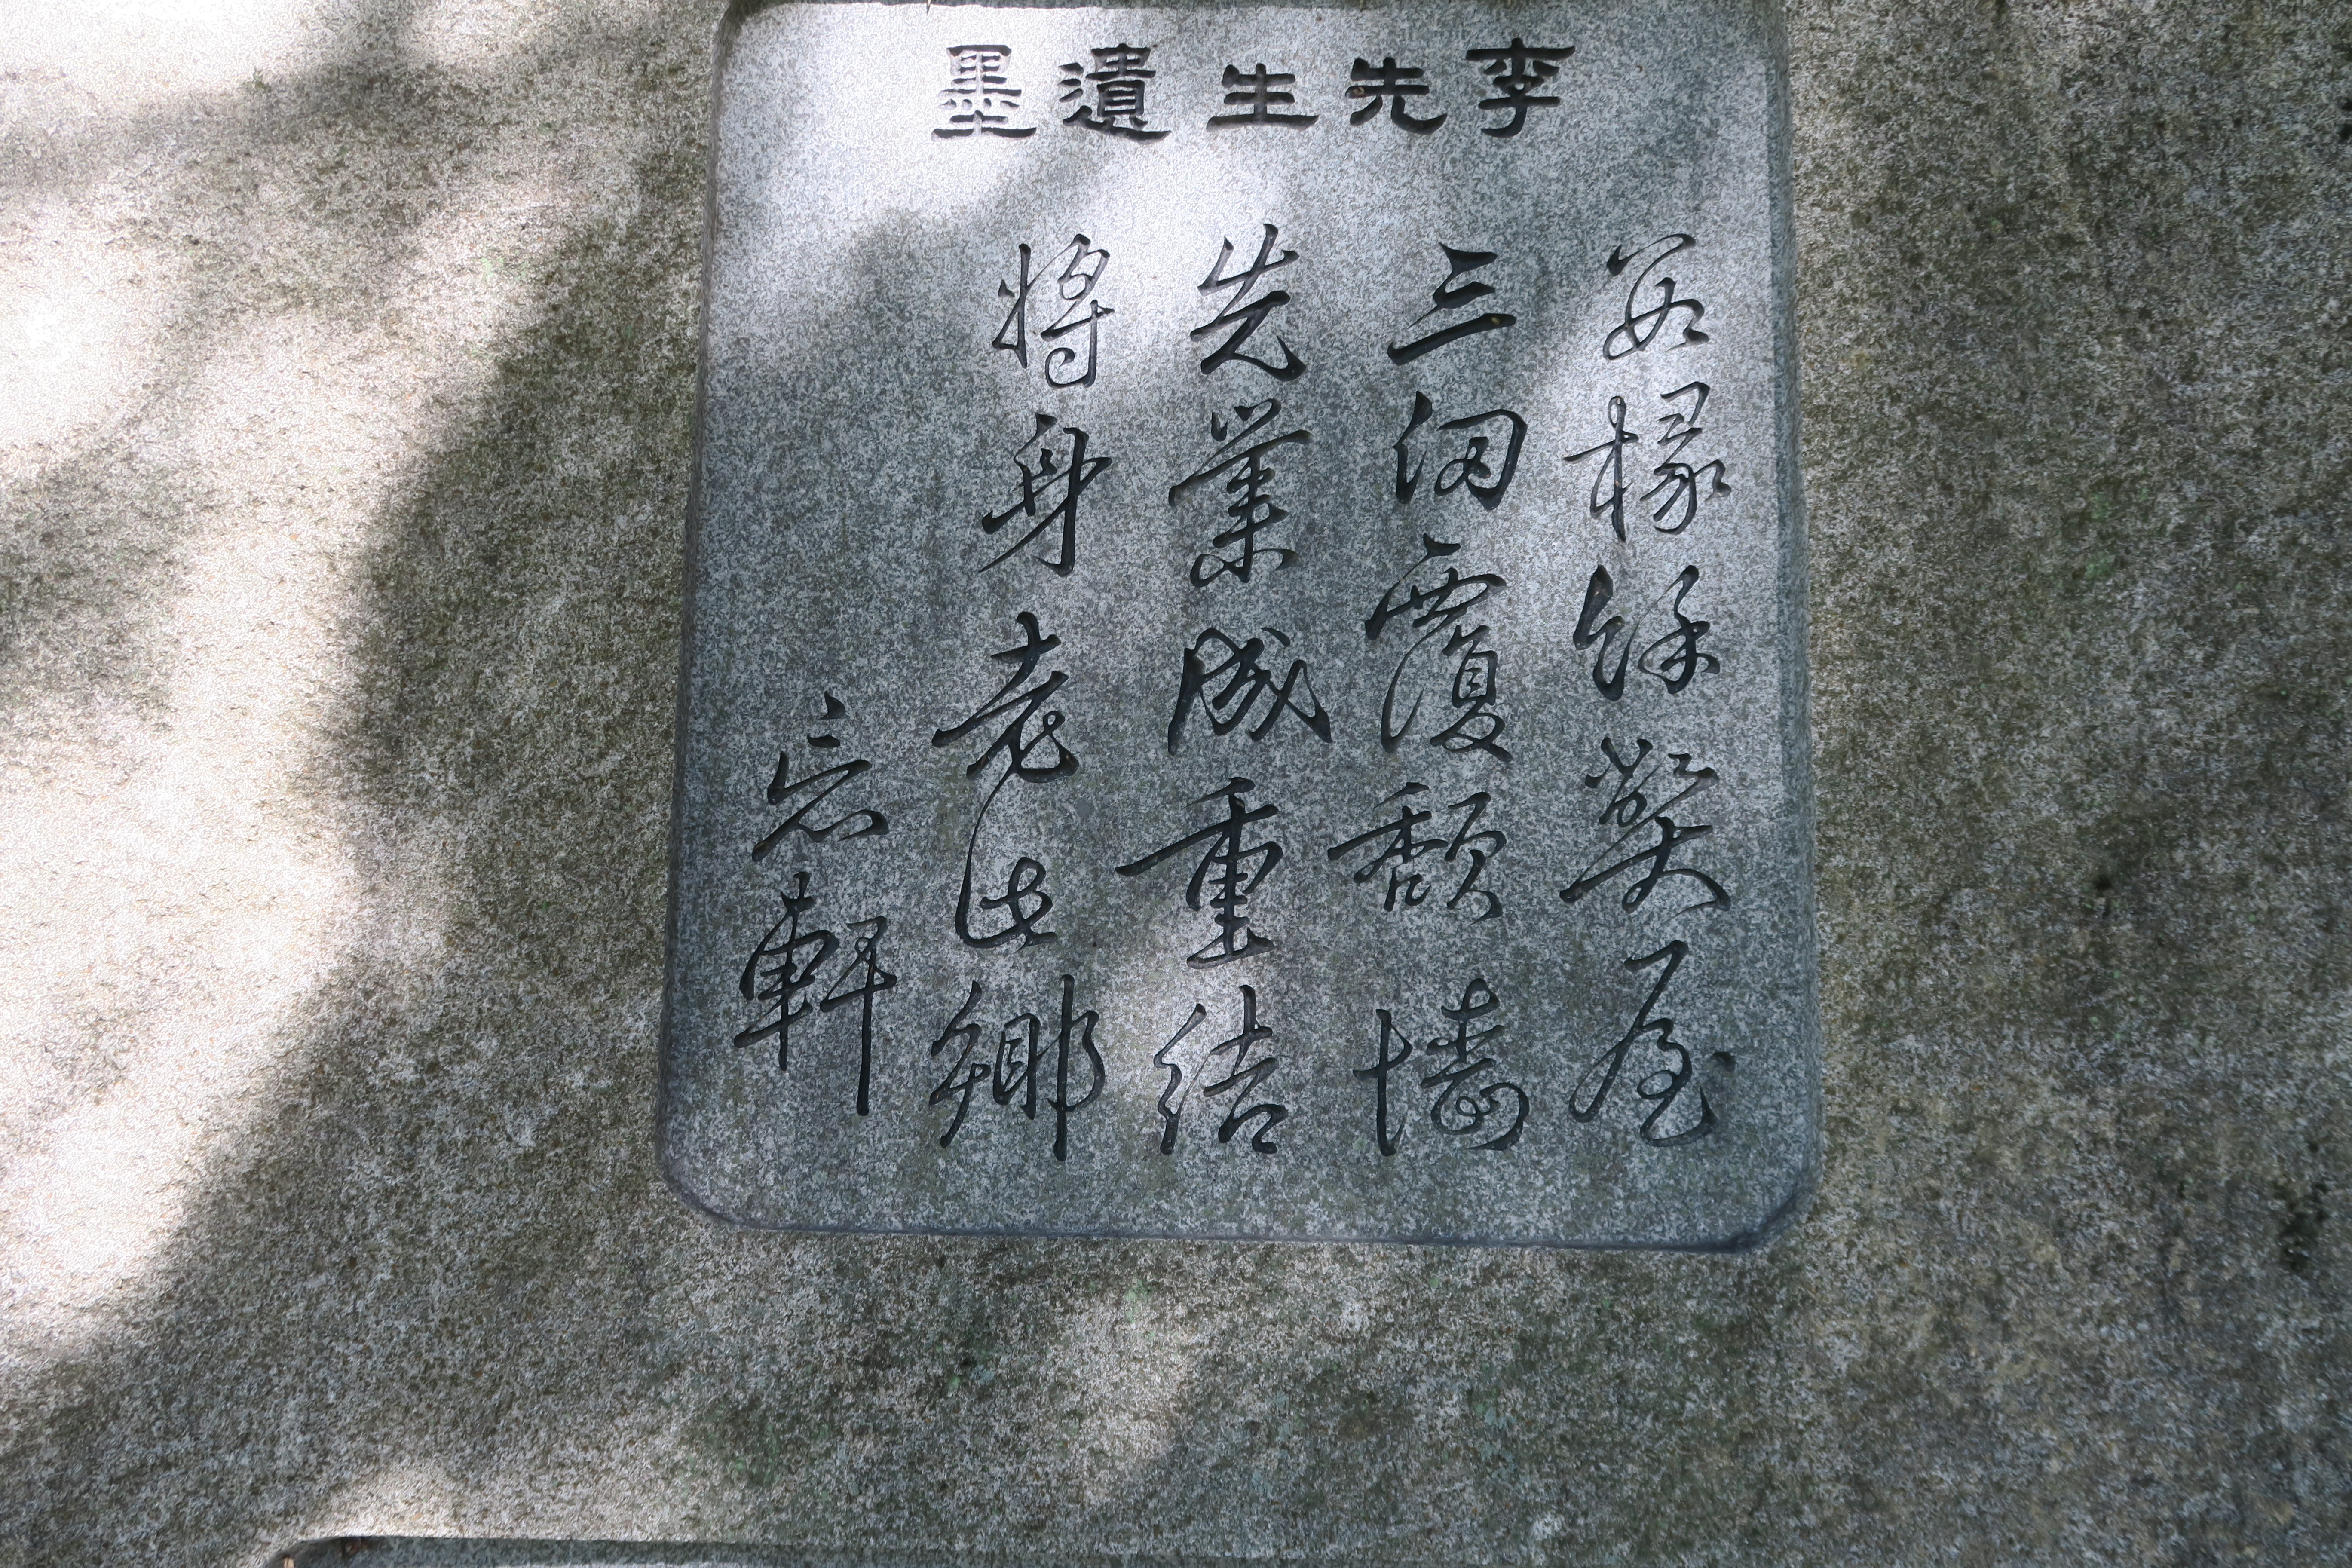 李先生遺墨
數椽餘弊屋
三仞覆頹墻
先業成重結
將身老此鄉
忘軒